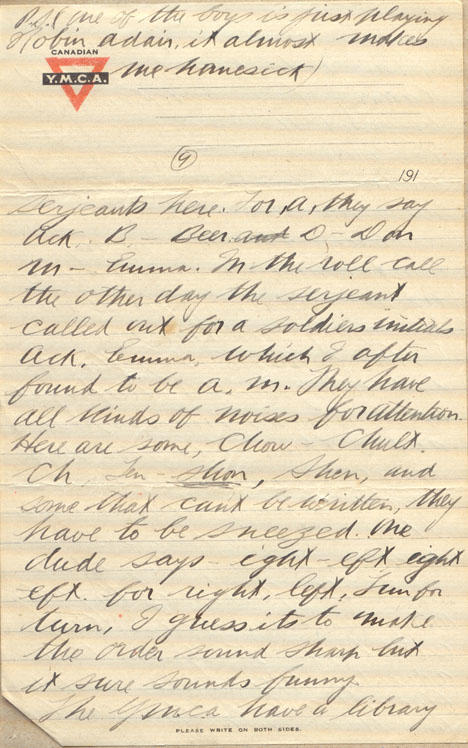 P.S. (one of the boys is just playing
Robin adair, it almost makes
me homesick)
CANADIAN
Y.M.C.A.
9
191
serjeants here. For, a, they say
Ack. B, - Beer, and D - Don
m - Emma. In the roll call
the other day the serjeant
called out for a soldiers initials
Ack, Emma, which I after
found to be a, m. They have
all kinds of noises for attention
Here are some, Chow - Chult.
Ch, Ten - shon, Shen, and
some that cant be written, they
have to be sneezed. One
dude says - eight - eft eight
eft. for right, left, Turn for
turn, I guess its to make
the order sound sharp but
it sure sounds funny
The Ymca have a library
PLEASE WRITE ON BOTH SIDES.